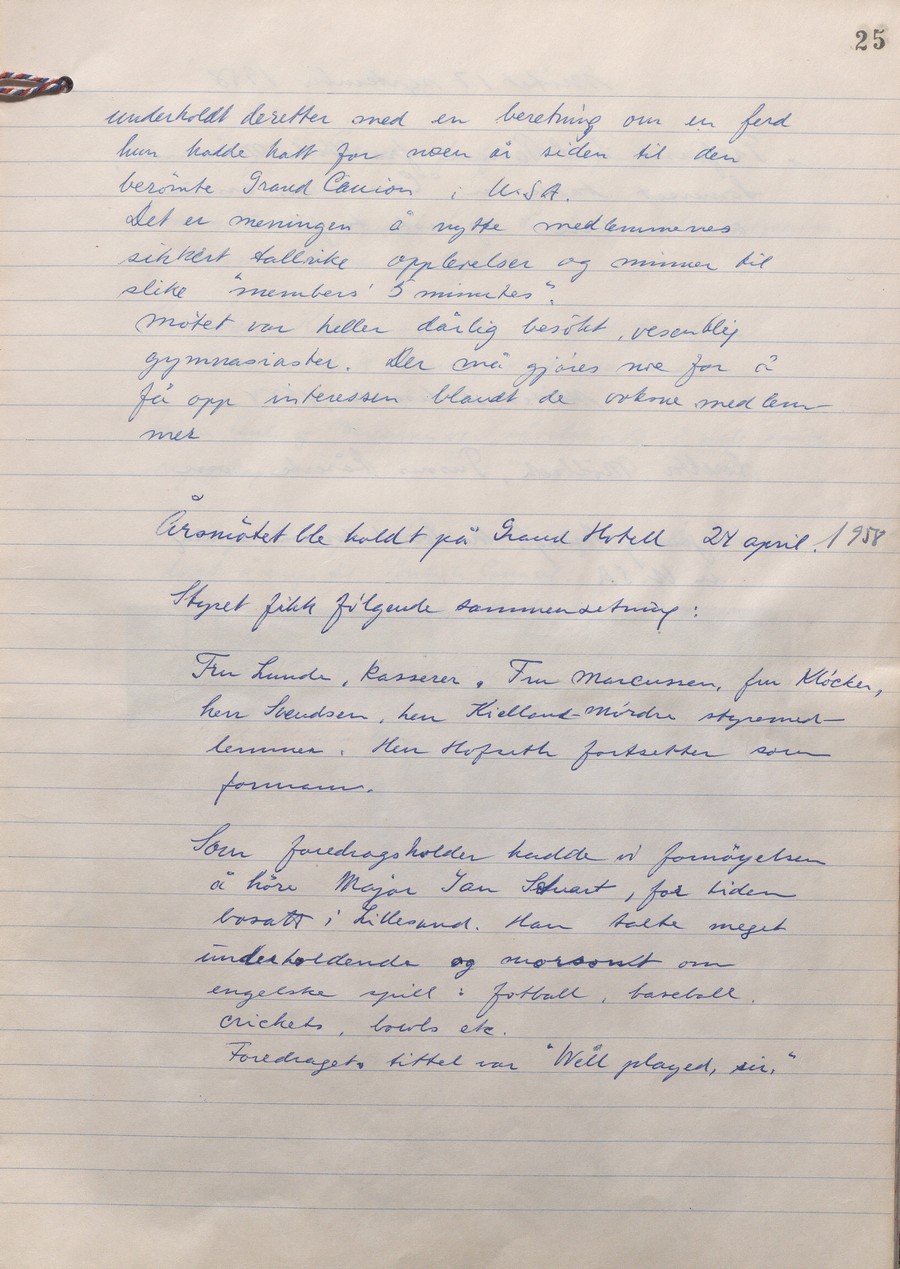 25
underholdt deretter med en beretning om en ferd
hun hadde hatt for noen år siden til den
berömte Grand Canion i U.S.A.
Det er meningen å nytte medlemmenes
sikkert tallrike opplevelser og minner til
slike "members' 5 minutes".
Mötet var heller dårlig besökt, vesentlig
gymnasiaster. Der må gjöres noe for å
få opp interessen blandt de voksne medlem-
mer
Årsmötet ble holdt på Grand Hotell 24 april. 1958
Styret fikk fölgende sammensetning:
Fru Lunde, kasserer, Fru Marcussen, fru Klöcker,
herr Svendsen, herr Kielland-Mördre styremed-
lemmer. Herr Hofseth fortsetter som
formann.
Som foredragsholder hadde vi fornöyelsen
å höre Major Ian Stuart, for tiden
bosatt i Lillesand. Han talte meget
underholdende og morsomt om
engelske spill: fotball, baseball,
crickets, bowls etc.
Foredragets tittel var "Well played, sir."